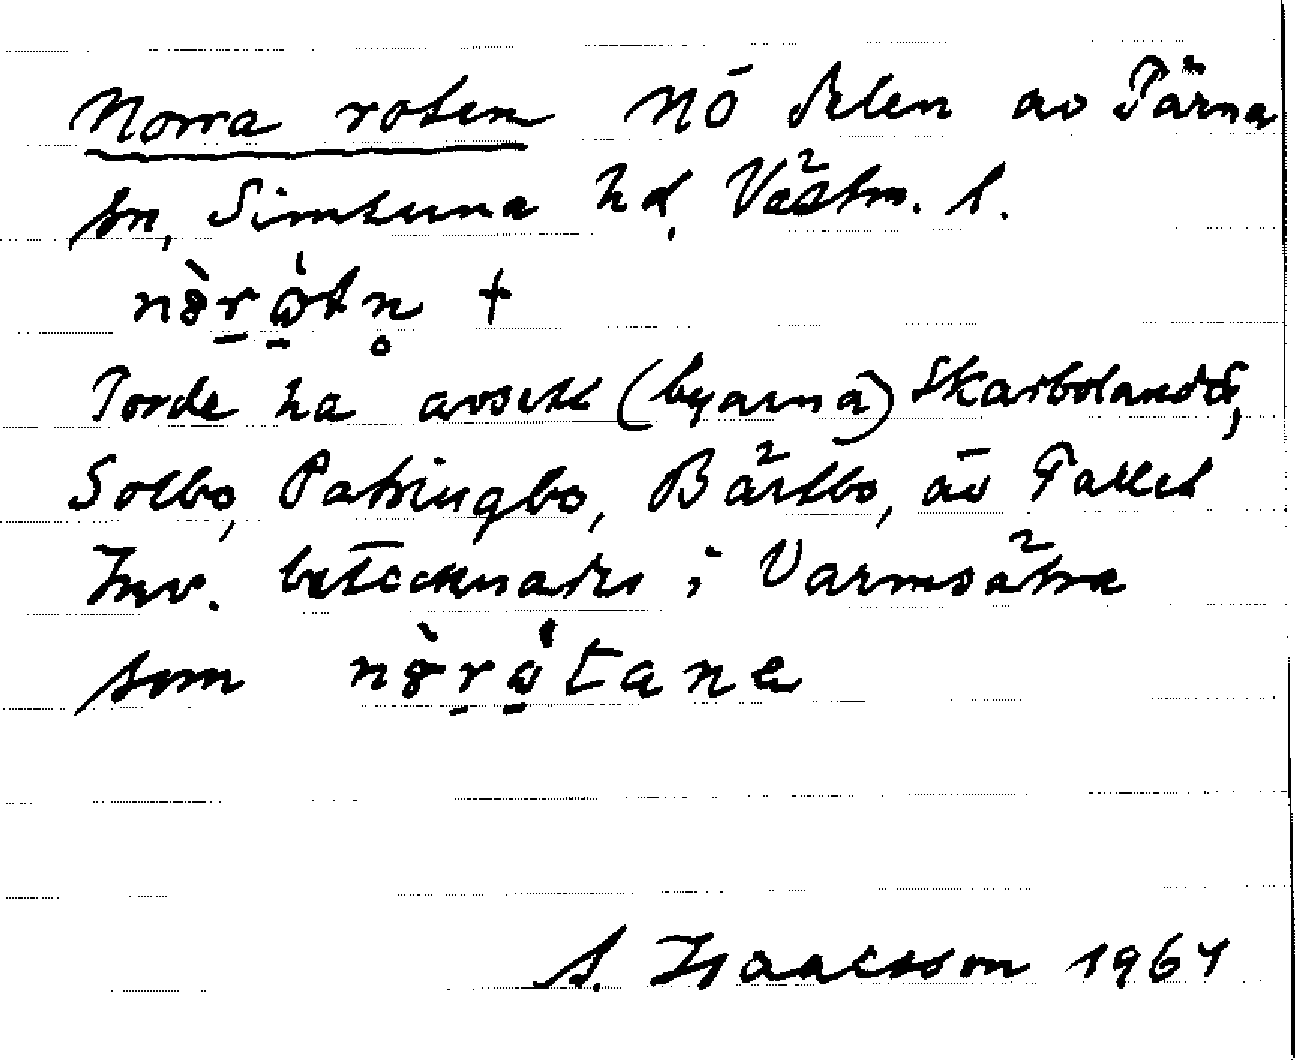 Norra roten NÖ delen av Tärna
sn, Simtuna hd, Västm. l.
Torde ha avsett (byarna) Skarbolandet,
Solbo, Patringbo, Bärtbo, äv Tallet
Inv. betecknades i Varmsätra
som
S. Isaacsson 1964